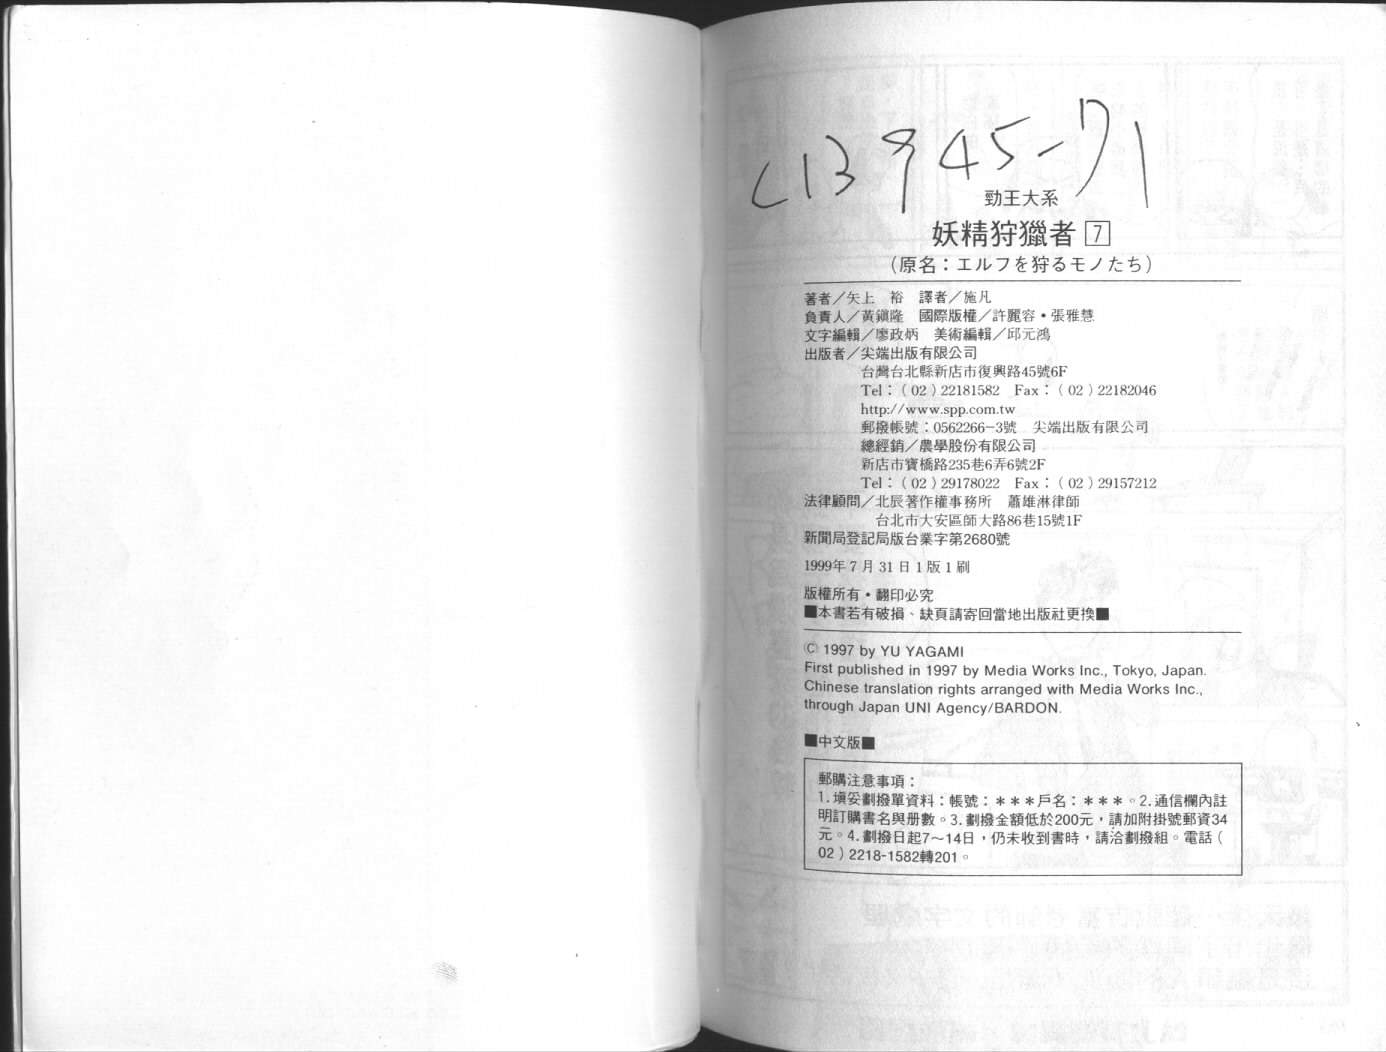 C13945-71
勁王大系
妖精狩獵者 7
(原名：エルフを狩るモノたち)
著者／矢上　裕　譯者／施凡
負責人／黃鎭隆　國際版權／許麗容・張雅慧
文字編輯／廖政炳　美術編輯／邱元鴻
出版者／尖端出版有限公司
台灣台北縣新店市復興路45號6F
Tel：（02）22181582　Fax：（02）22182046
http://www.spp.com.tw
郵撥帳號：0562266-3號　尖端出版有限公司
總經銷／農學股份有限公司
新店市寶橋路235巷6弄6號2F
Tel：（02）29178022　Fax：（02）29157212
法律顧問／北辰著作權事務所　蕭雄淋律師
台北市大安區師大路86巷15號1F
新聞局登記局版台業字第2680號
1999年7月31日1版1刷
版權所有・翻印必究
■本書若有破損、缺頁請寄回當地出版社更換■
Ⓒ 1997 by YU YAGAMI
First published in 1997 by Media Works Inc., Tokyo, Japan.
Chinese translation rights arranged with Media Works Inc.,
through Japan UNI Agency/BARDON.
■中文版■
郵購注意事項：
1.塡妥劃撥單資料：帳號：＊＊＊戶名：＊＊＊。2.通信欄內註
明訂購書名與册數。3.劃撥金額低於200元，請加附掛號郵資34
元。4.劃撥日起7～14日，仍未收到書時，請洽劃撥組。電話（
02）2218-1582轉201。